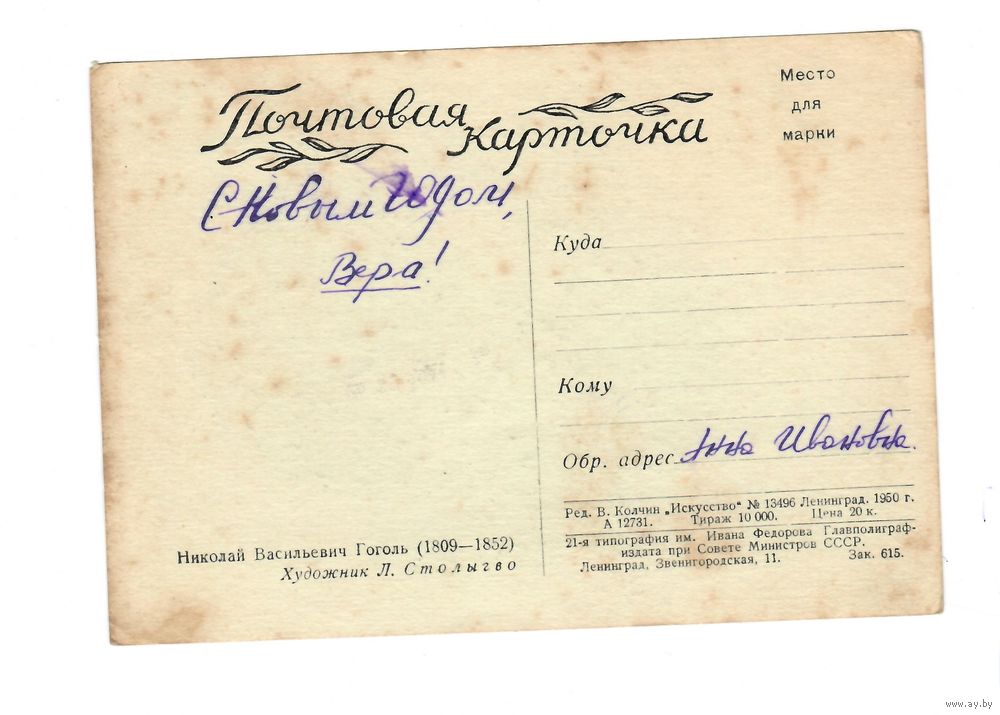 Почтовая
Карточка
Место
для
марки
С Новым годом,
Вера!
Куда
Кому
Обр. адрес Анна Ивановна.
Ред. В. Колчин „Искусство“ № 13496 Ленинград. 1950 г.
А 12731. Тираж 10 000. Цена 20 к.
21-я типография им. Ивана Федорова Главполиграф-
издата при Совете Министров СССР.
Ленинград, Звенигородская, 11. Зак. 615.
Николай Васильевич Гоголь (1809—1852)
Художник Л. Столыгво
www.ay.by